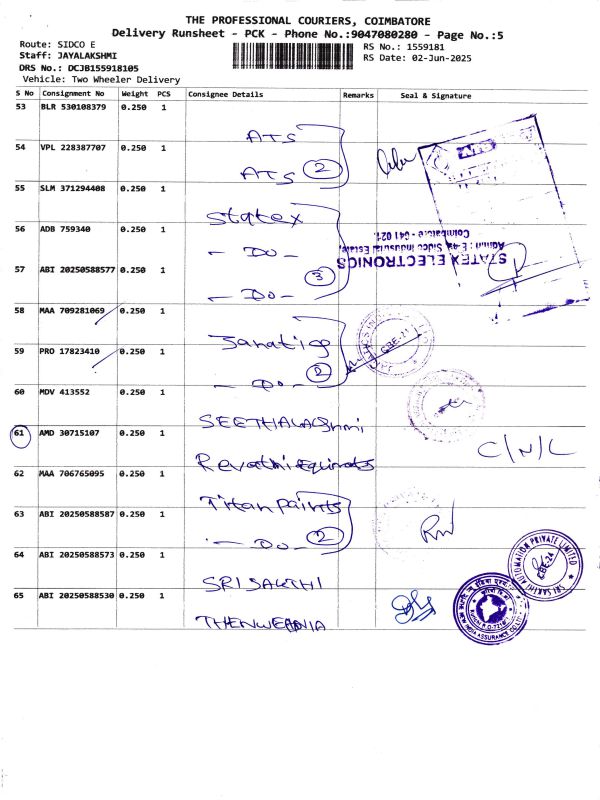 THE PROFESSIONAL COURIERS, COIMBATORE
Delivery Runsheet - PCK - Phone No.:9047080280 - Page No.:5
Route: SIDCO E
Staff: JAYALAKSHMI
DRS No.: DCJB155918105
Vehicle: Two Wheeler Delivery
RS No.: 1559181
RS Date: 02-Jun-2025
S No Consignment No Weight PCS Consignee Details Remarks Seal & Signature
53 BLR 530108379 0.250 1 ATS
54 VPL 228387707 0.250 1 ATS 2
55 SLM 371294408 0.250 1 Statex
56 ADB 759340 0.250 1 - DO -
57 ABI 20250588577 0.250 1 - DO - 3
STATEX ELECTRONICS
Coimbatore - 641 021.
58 MAA 709281069 0.250 1
59 PRO 17823410 0.250 1 - DO - 2
CBE-21
60 MDV 413552 0.250 1 SEETHALAKSHMI
61 AMD 30715107 0.250 1 Revathi
C/N/L
62 MAA 706765095 0.250 1 Titan paints
63 ABI 20250588587 0.250 1 - DO - 2
64 ABI 20250588573 0.250 1 SRI SAKTHI
SRI SAKTHI AUTOMATION PRIVATE LIMITED
CBE-24
65 ABI 20250588530 0.250 1